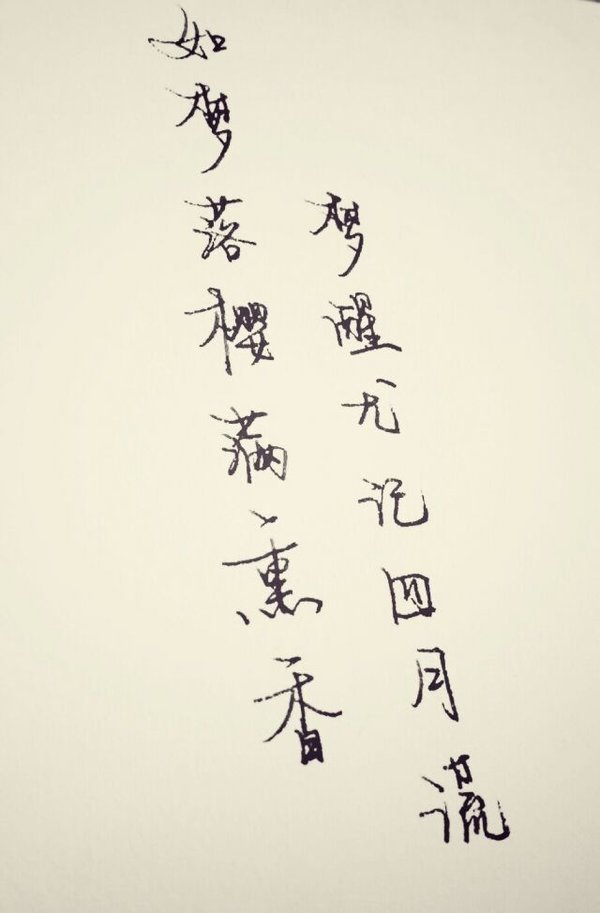 如梦落樱满熏香
梦醒尤记四月谎